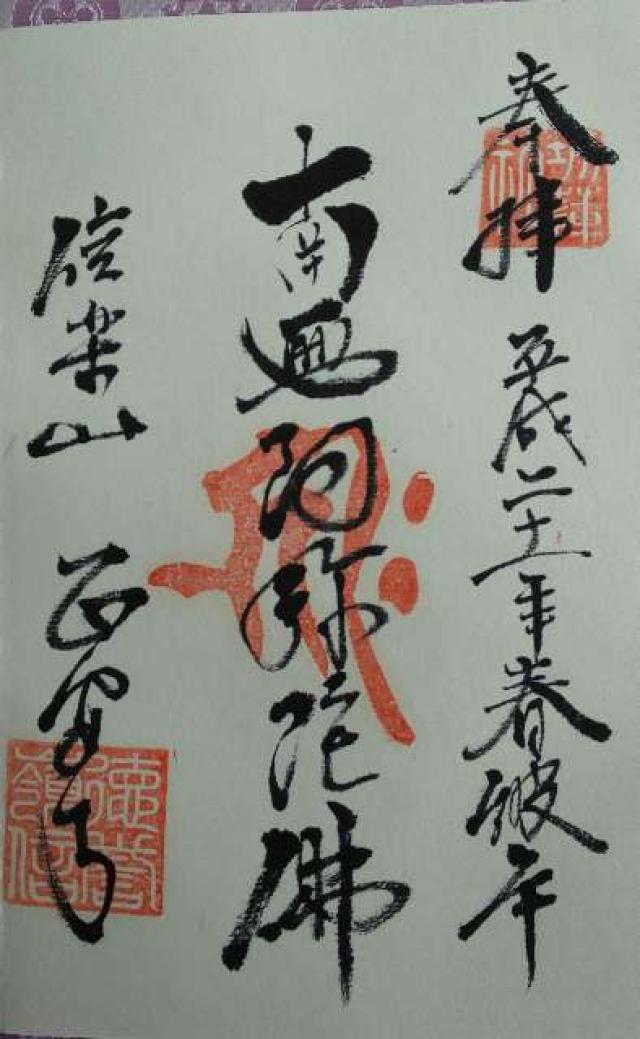 奉拝
平成二十一年春彼岸
南無阿弥陀佛
信楽山 正寺